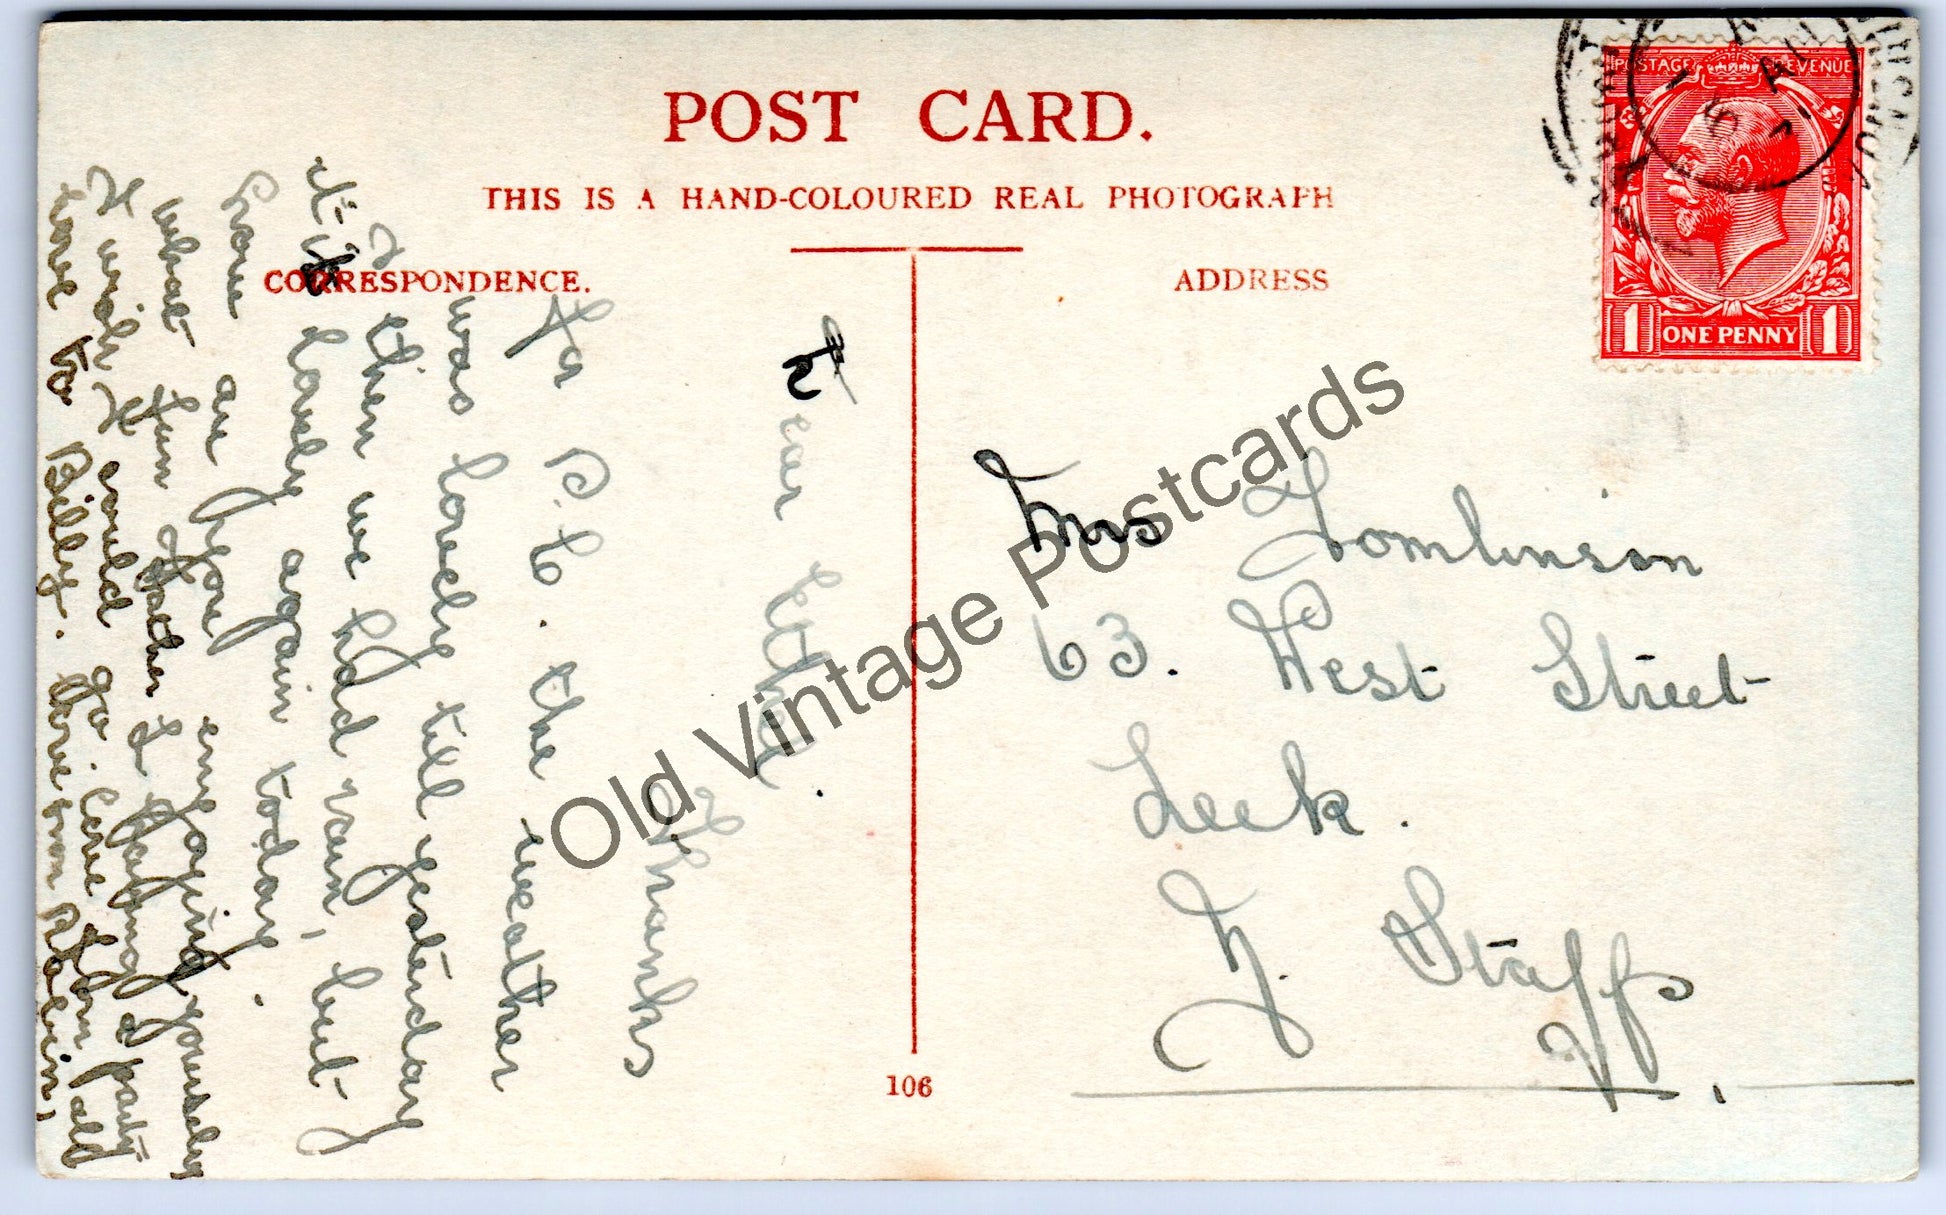 POST CARD.
THIS IS A HAND-COLOURED REAL PHOTOGRAPH
CORRESPONDENCE.
ADDRESS
POSTAGE REVENUE
1 ONE PENNY 1
Dear Ethel.
Thanks
for P.C. the weather
was lovely till yesterday
& then we had rain, but
it is lovely again today.
hope are you enjoying yourselves
what fun Father I playing a party
I wish I could go. love from all
love to Billy. love from Robin,
Mrs Tomlinson
63. West Street
Leek.
N. Staffs
106
Old Vintage Postcards